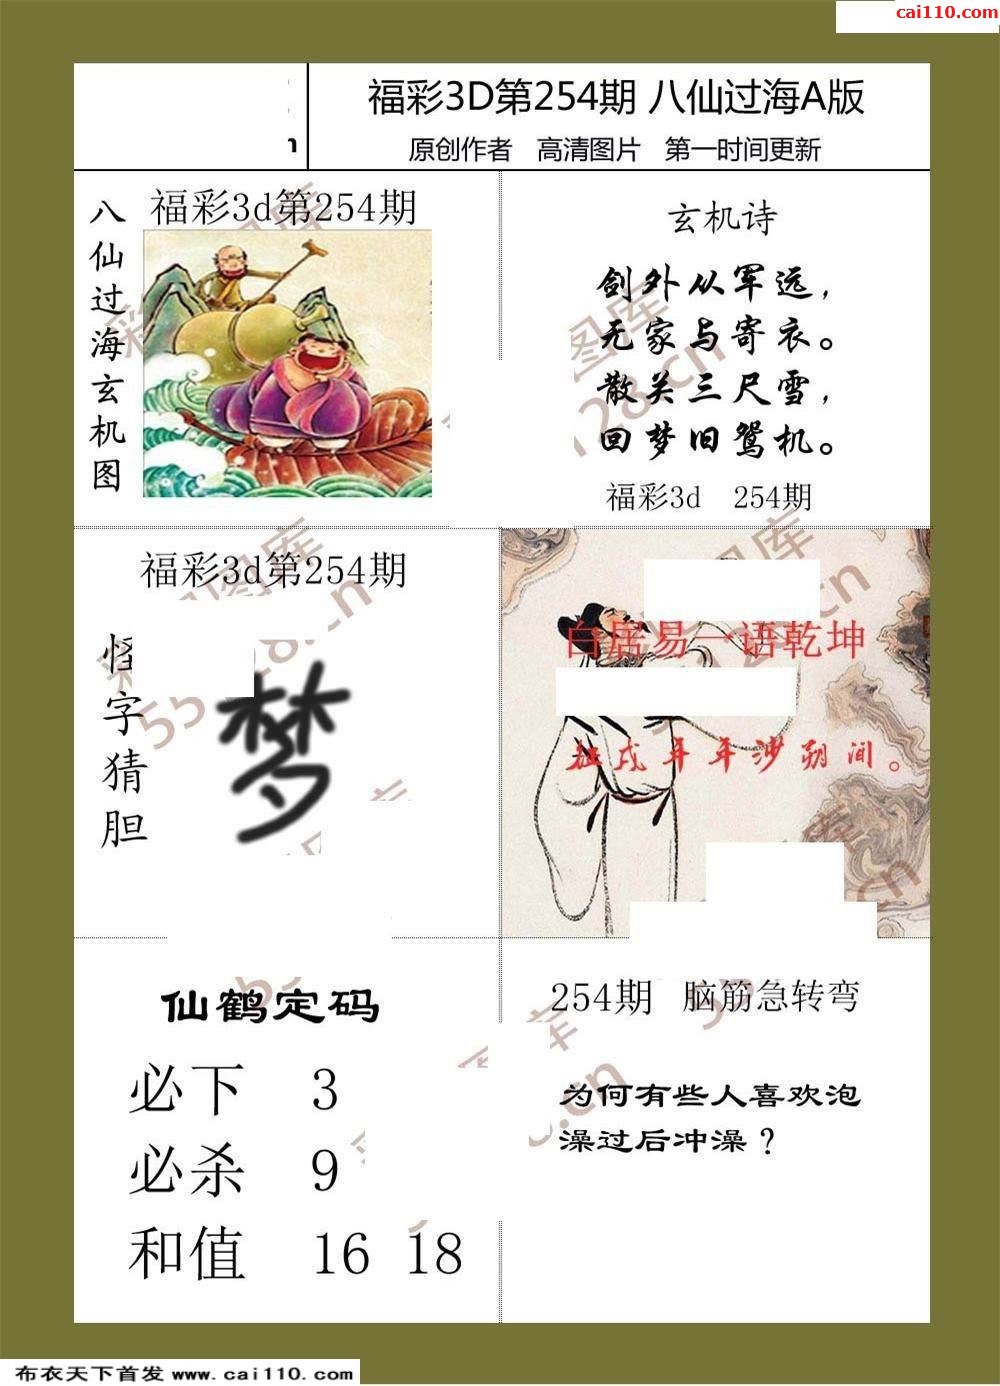 cai110.com
福彩3D第254期 八仙过海A版
原创作者 高清图片 第一时间更新
八仙过海玄机图
福彩3d第254期
玄机诗
剑外从军远，
无家与寄衣。
散关三尺雪，
回梦旧鸳机。
福彩3d 254期
福彩3d第254期
字猜胆
梦
白居易一语乾坤
征戍年年沙朔间。
仙鹤定码
必下 3
必杀 9
和值 16 18
254期 脑筋急转弯
为何有些人喜欢泡
澡过后冲澡？
布衣天下首发 www.cai110.com